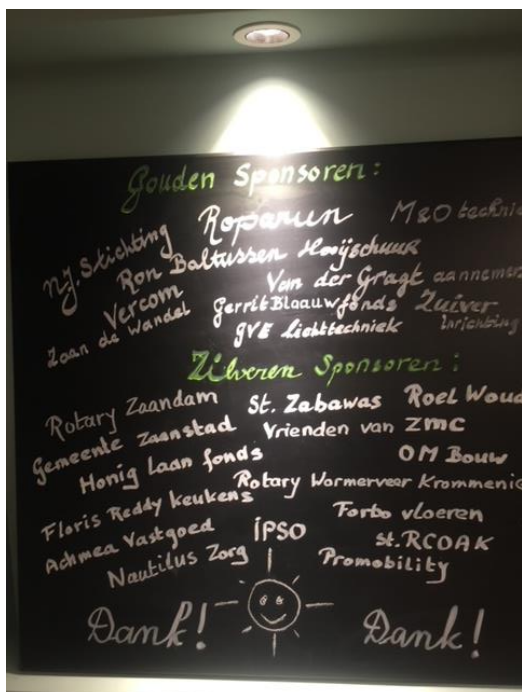 Gouden Sponsoren:
Roparun
M&O technie
N.J. Stichting
Ron Baltussen Hooijschuur
Vercom
Van der Gragt aannemers
Zaan de Wandel
Gerrit Blaauwfonds
Zuiver
inrichting
GVE Lichttechniek
Zilveren Sponsoren:
Rotary Zaandam
St. Zabawas
Roel Woud
Gemeente Zaanstad
Vrienden van ZMC
Honig Laan fonds
OM Bouw
Rotary Wormerveer Krommenie
Floris Reddy keukens
Forbo vloeren
Achmea Vastgoed
IPSO
St. RCOAK
Nautilus Zorg
Promobility
Dank!
Dank!